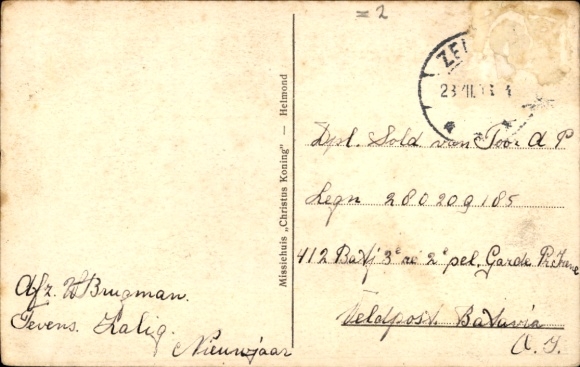 = 2
ZE
Missiehuis „Christus Koning" — Helmond
Dpl. Sold van Toor A P
Legn 280209185
412 Batij 3e 2e pel. Garde Pr. Irene
Veldpost. Batavia
Afz. W Brugman.
Tevens. Zalig.
Nieuwjaar